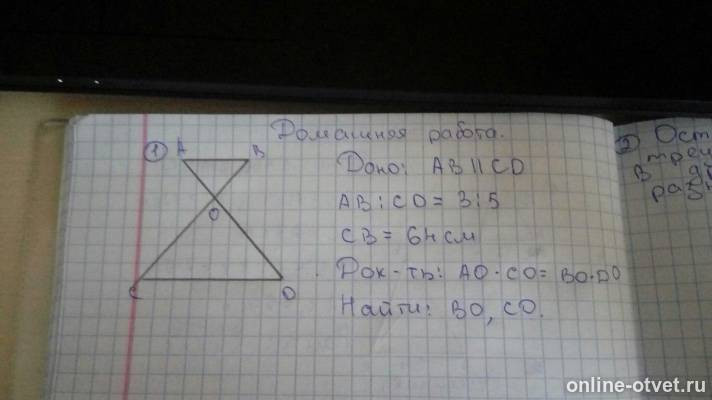 Домашняя работа.
1 A B Дано: AB || CD
O AB : CD = 3:5
CB = 64 см
C D Док-ть: AO · CO = BO · DO
Найти: BO, CO.
2 Ост
трец
в
раз
online-otvet.ru